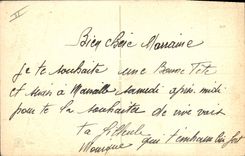 II
Bien Chère Marraine
je te souhaite une Bonne Fête
et serai à Marseille samedi après midi
pour te la souhaiter de vive voix
ta filleule
Monique qui t'embrasse bien fort